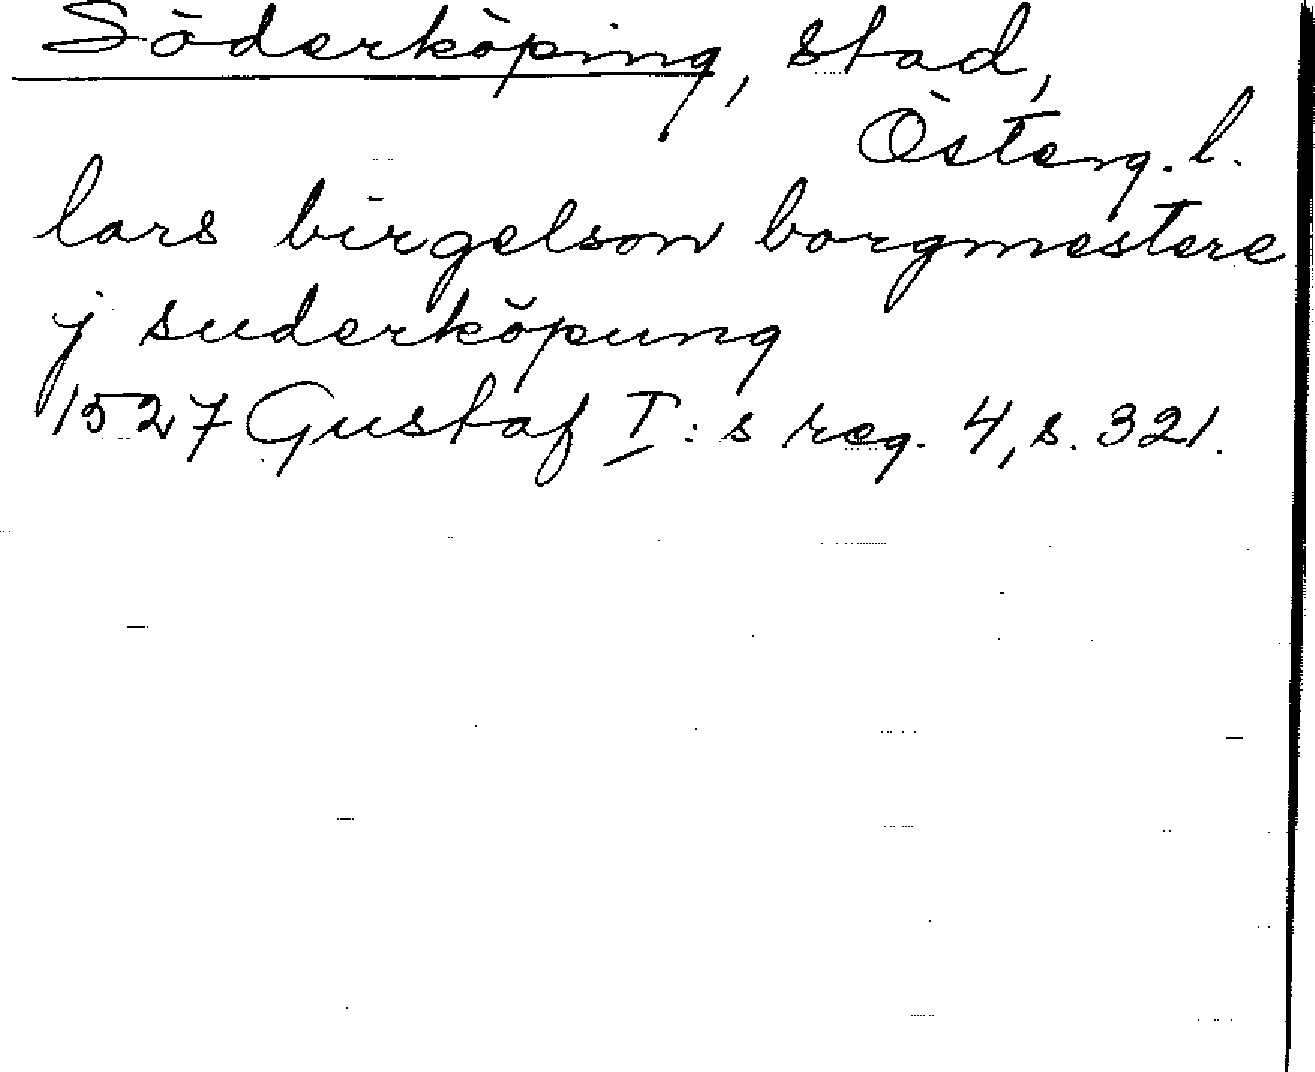 Söderköping, stad,
Österg. l.
lars birgelson borgmestere
j suderköpung
1527 Gustaf I:s reg. 4, s. 321.